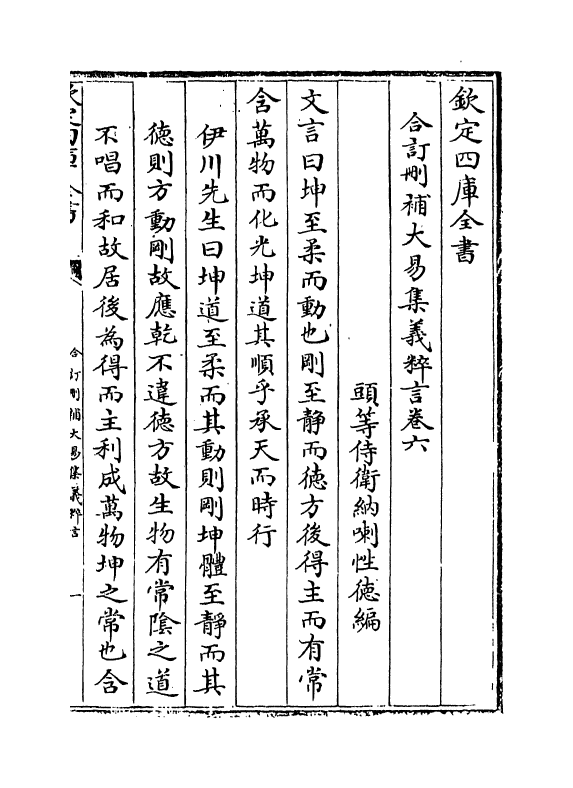 欽定四庫全書
合訂刪補大易集義粹言卷六
頭等侍衛納喇性德編
文言曰坤至柔而動也剛至靜而德方後得主而有常
含萬物而化光坤道其順乎承天而時行
伊川先生曰坤道至柔而其動則剛坤體至靜而其
德則方動剛故應乾不違德方故生物有常陰之道
不唱而和故居後為得而主利成萬物坤之常也含
欽定四庫全書
合訂刪補大易集義粹言
一